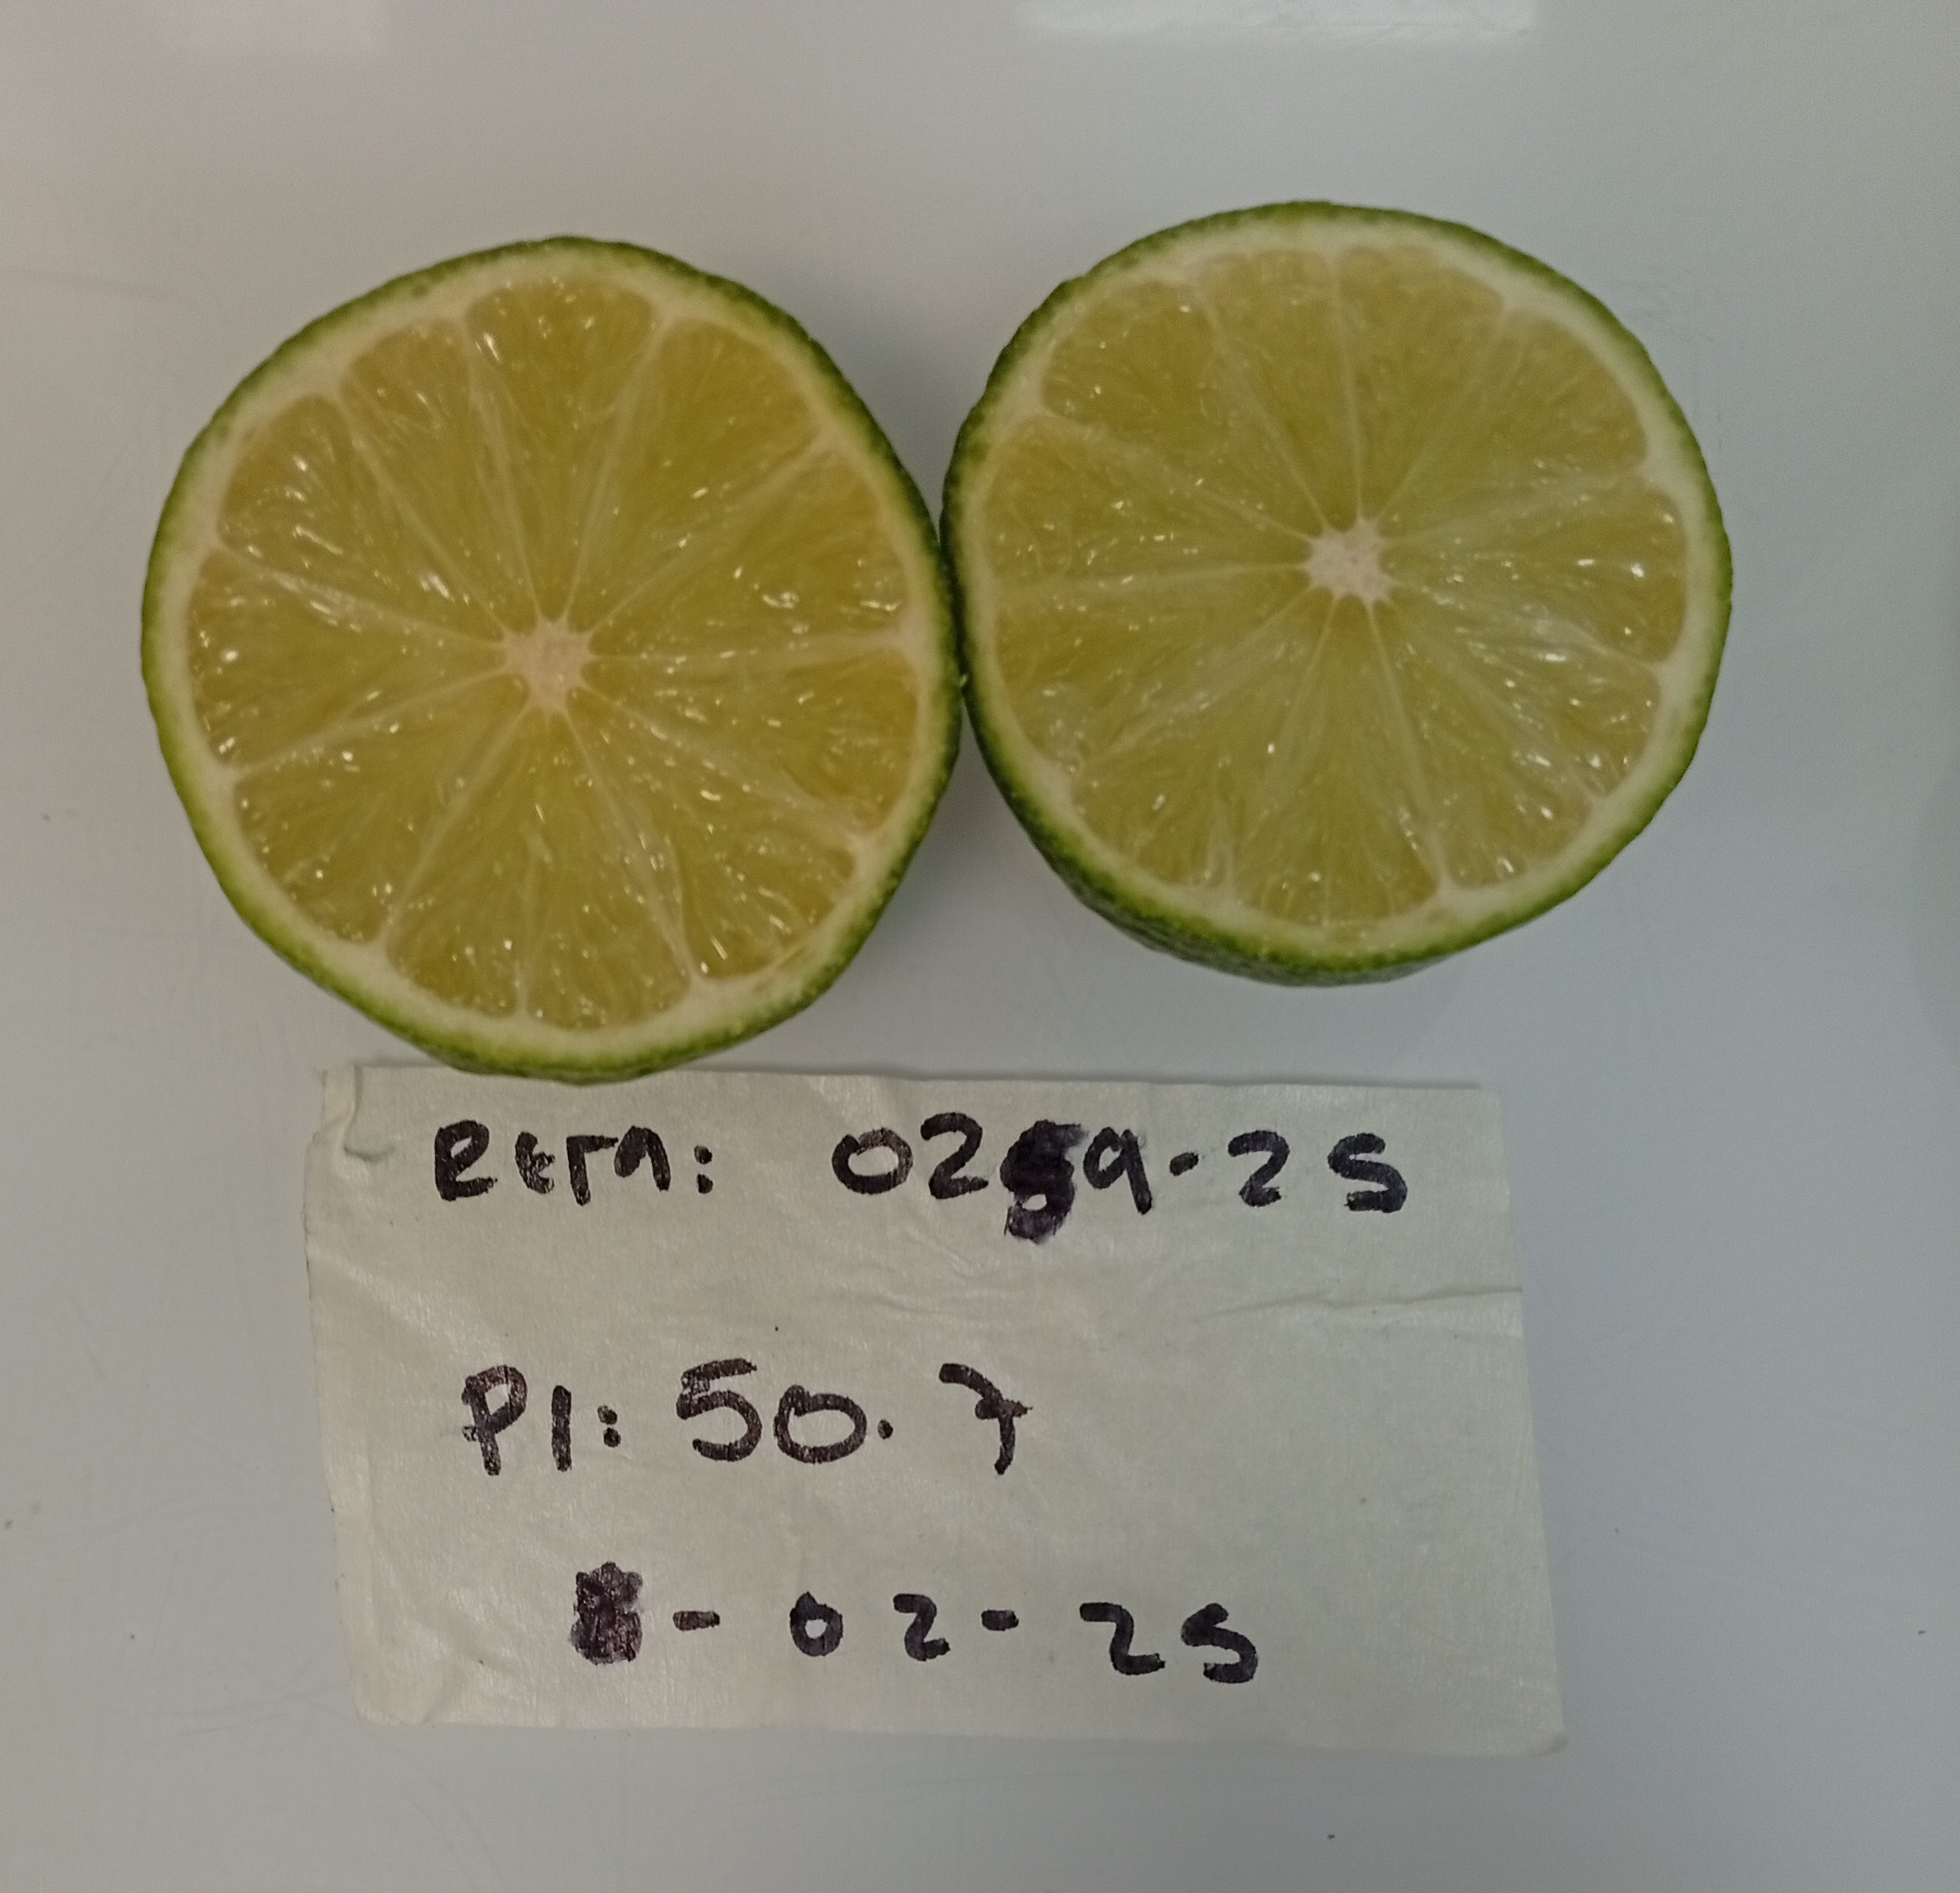 Reta: 0259-25
PI: 50.7
8-02-25